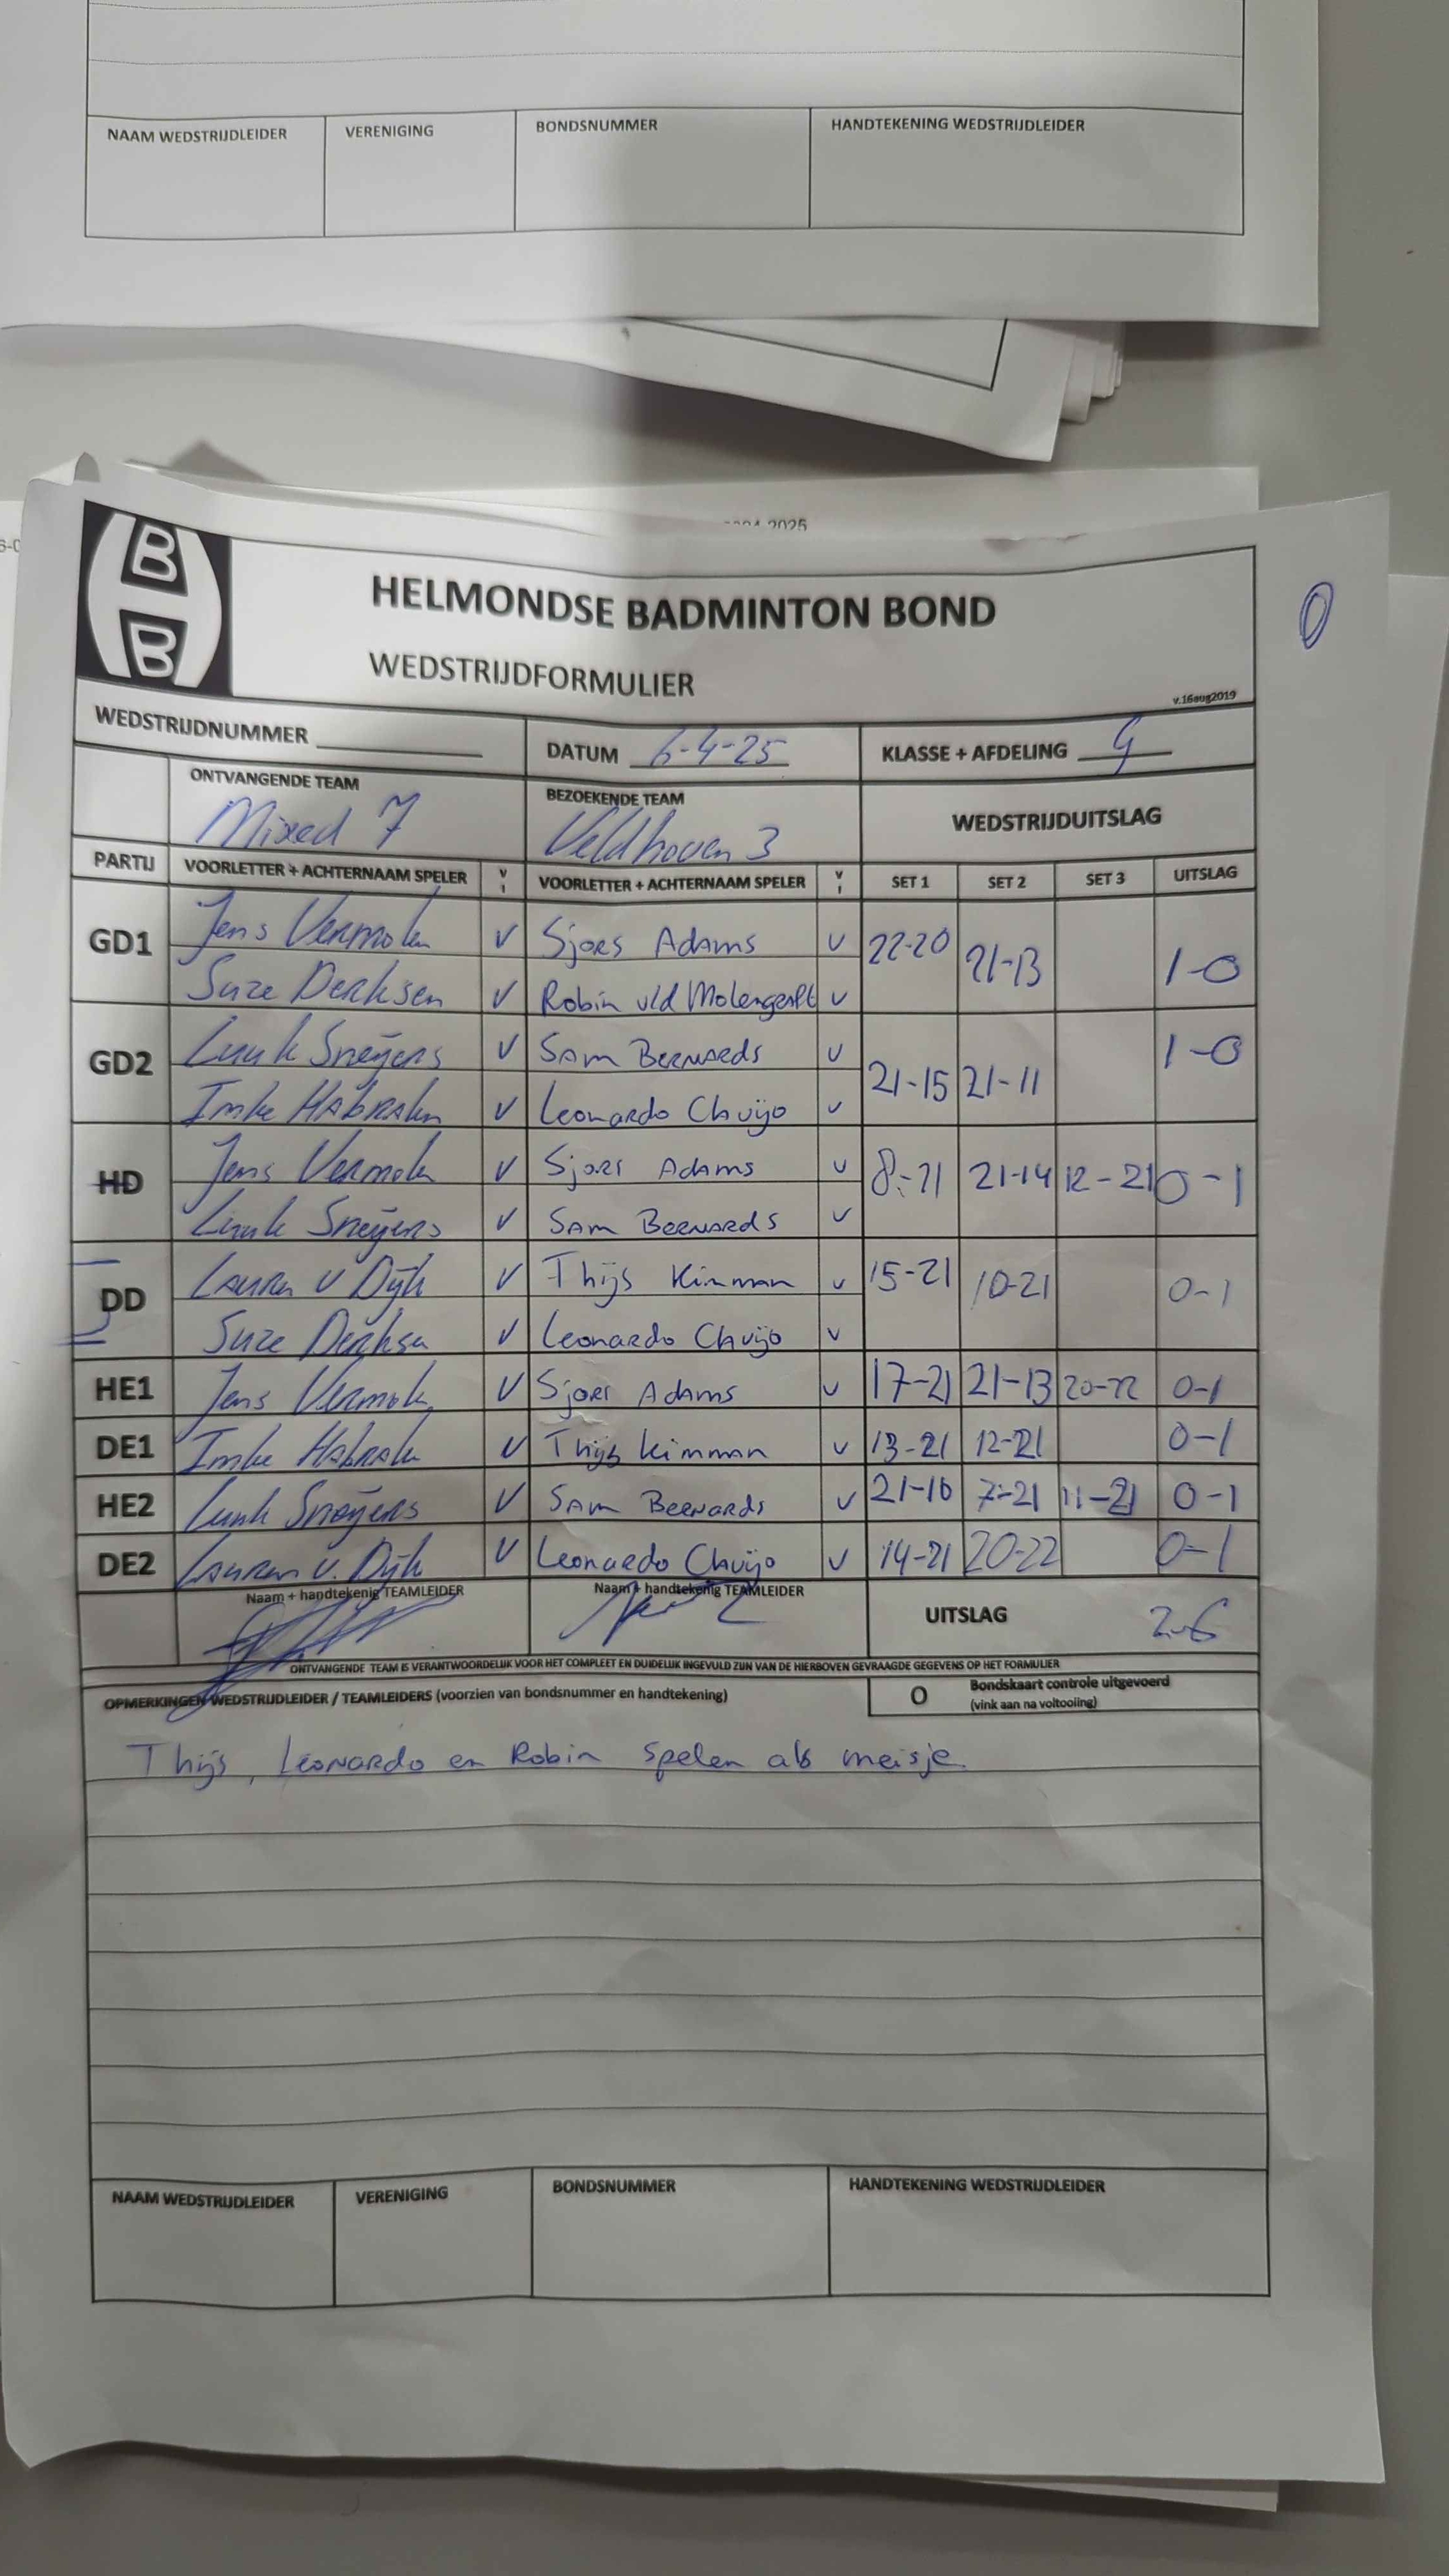 NAAM WEDSTRIJDLEIDER VERENIGING BONDSNUMMER HANDTEKENING WEDSTRIJDLEIDER
2025
HELMONDSE BADMINTON BOND
WEDSTRIJDFORMULIER
v.16aug2019
WEDSTRIJDNUMMER DATUM 6-4-25 KLASSE + AFDELING
ONTVANGENDE TEAM BEZOEKENDE TEAM WEDSTRIJDUITSLAG
Mixed 7 Veldhoven 3
PARTIJ VOORLETTER + ACHTERNAAM SPELER V I VOORLETTER + ACHTERNAAM SPELER V I SET 1 SET 2 SET 3 UITSLAG
GD1 Jens Vermolen V Sjors Adams V 22-20 21-13 1-0
Suze Derksen V Robin v/d Molengraft V
GD2 Luuk Sneijers V Sam Bernards V 21-15 21-11 1-0
Imke Habraken V Leonardo Chuijo V
HD Jens Vermolen V Sjors Adams V 8-21 21-14 12-21 0-1
Luuk Sneijers V Sam Bernards V
DD Lauren v Dijk V Thijs Kimman V 15-21 10-21 0-1
Suze Derksen V Leonardo Chuijo V
HE1 Jens Vermolen V Sjors Adams V 17-21 21-13 20-22 0-1
DE1 Imke Habraken V Thijs Kimman V 13-21 12-21 0-1
HE2 Luuk Sneijers V Sam Bernards V 21-16 7-21 11-21 0-1
DE2 Lauren v. Dijk V Leonardo Chuijo V 14-21 20-22 0-1
Naam + handtekenig TEAMLEIDER Naam + handtekenig TEAMLEIDER UITSLAG 2-6
ONTVANGENDE TEAM IS VERANTWOORDELIJK VOOR HET COMPLEET EN DUIDELIJK INGEVULD ZIJN VAN DE HIERBOVEN GEVRAAGDE GEGEVENS OP HET FORMULIER
OPMERKINGEN WEDSTRIJDLEIDER / TEAMLEIDERS (voorzien van bondsnummer en handtekening) O Bondskaart controle uitgevoerd
(vink aan na voltooiing)
Thijs, Leonardo en Robin spelen als meisje
NAAM WEDSTRIJDLEIDER VERENIGING BONDSNUMMER HANDTEKENING WEDSTRIJDLEIDER